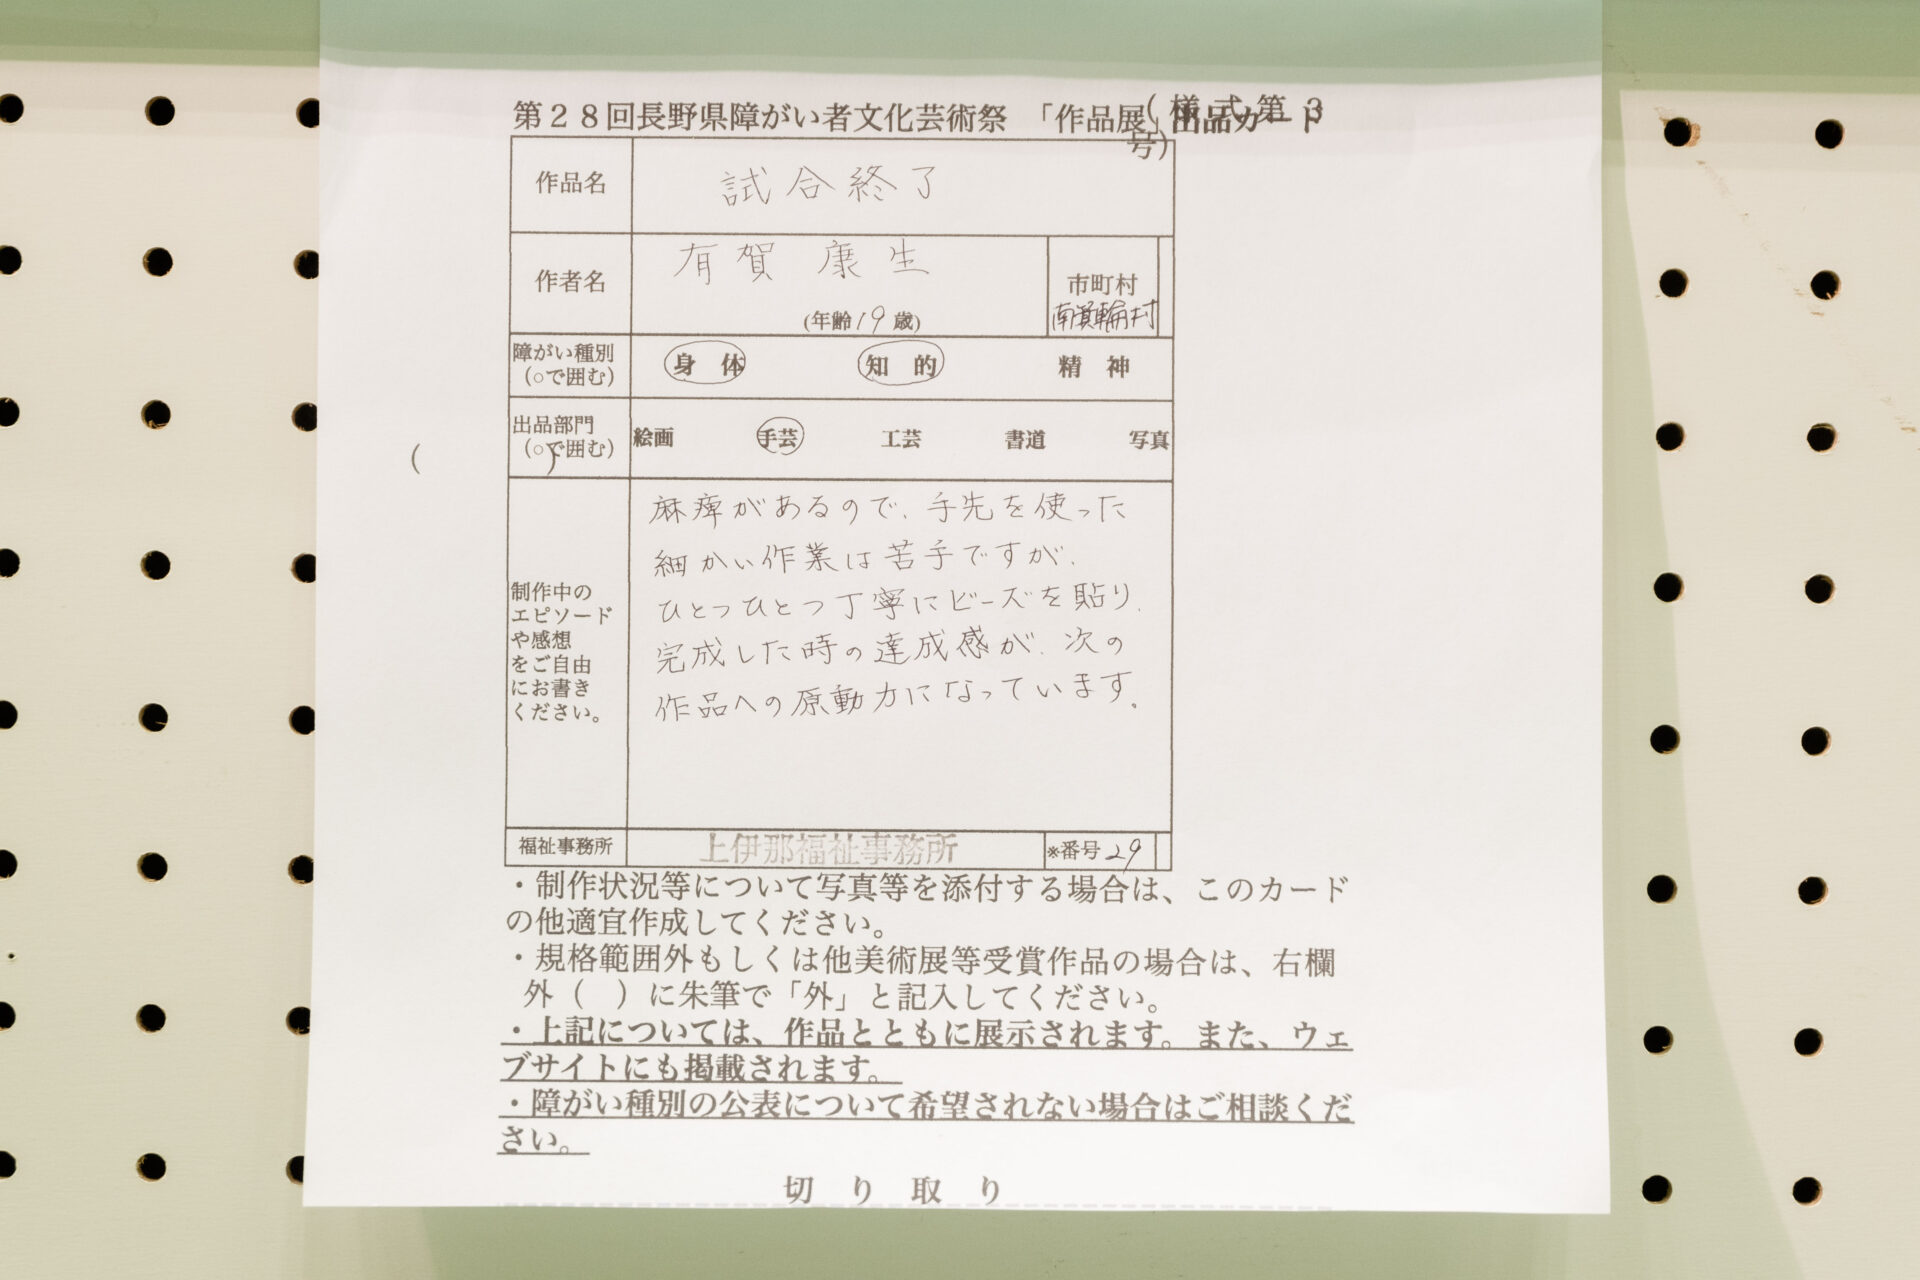 （様式第３号）
第２８回長野県障がい者文化芸術祭 「作品展」出品カード
作品名 試合終了
作者名 有賀 康生
(年齢19歳)
市町村
南箕輪村
障がい種別
（○で囲む）
身 体 知 的 精 神
出品部門
（○で囲む）
絵画 手芸 工芸 書道 写真
（ ）
制作中の
エピソード
や感想
をご自由
にお書き
ください。
麻痺があるので、手先を使った
細かい作業は苦手ですが、
ひとつひとつ丁寧にビーズを貼り、
完成した時の達成感が、次の
作品への原動力になっています。
福祉事務所 上伊那福祉事務所 ※番号 29
・制作状況等について写真等を添付する場合は、このカード
の他適宜作成してください。
・規格範囲外もしくは他美術展等受賞作品の場合は、右欄
外（ ）に朱筆で「外」と記入してください。
・上記については、作品とともに展示されます。また、ウェ
ブサイトにも掲載されます。
・障がい種別の公表について希望されない場合はご相談くだ
さい。
切 り 取 り